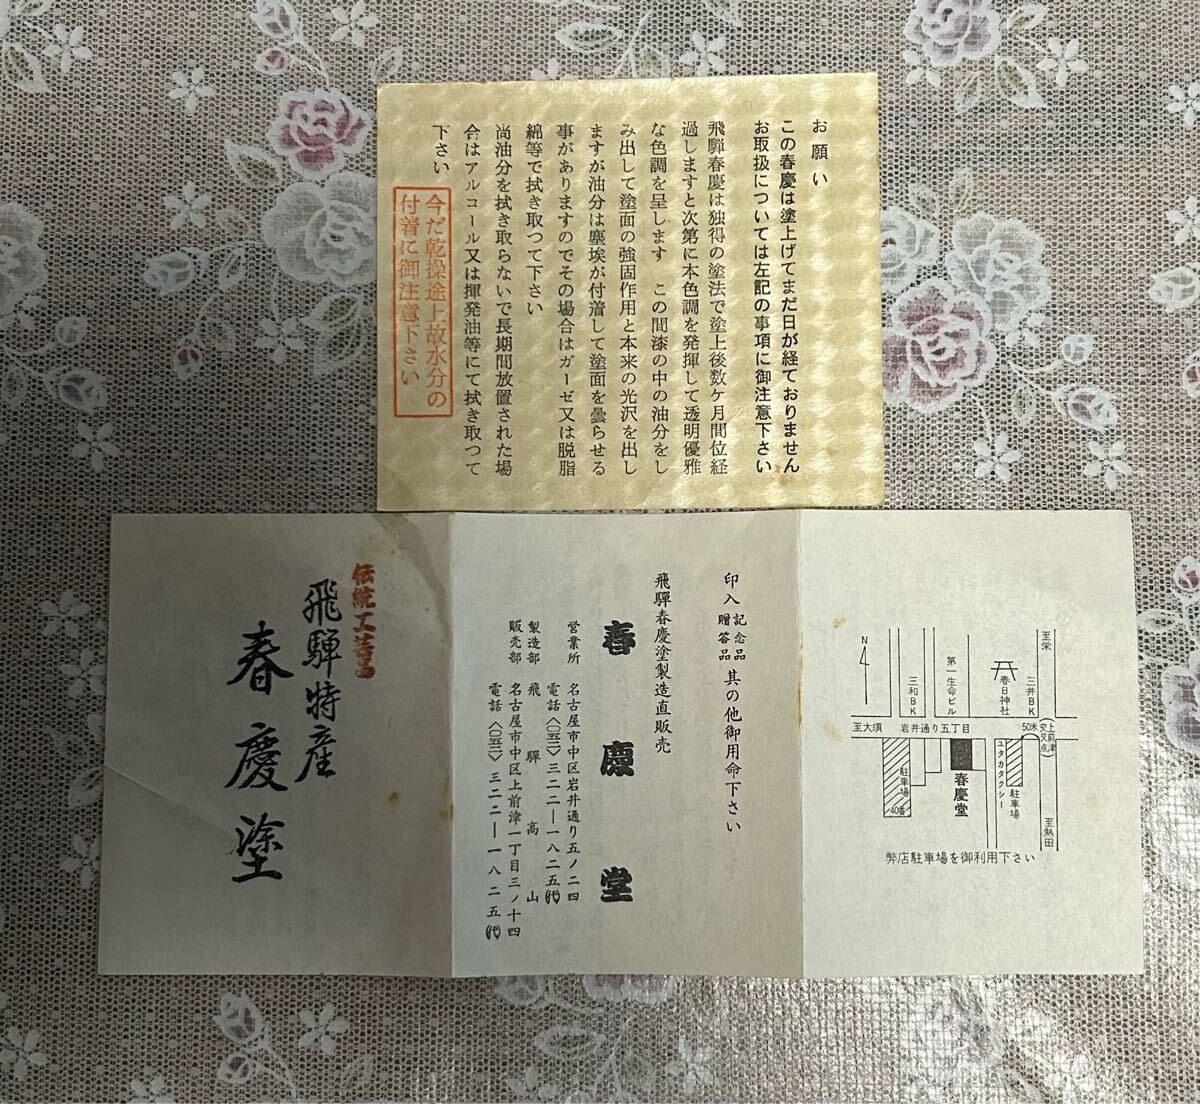 お願い
この春慶は塗上げてまだ日が経ておりません
お取扱については左記の事項に御注意下さい
飛騨春慶は独得の塗法で塗上後数ケ月間位経
過しますと次第に本色調を発揮して透明優雅
な色調を呈します　この間漆の中の油分をし
み出して塗面の強固作用と本来の光沢を出し
ますが油分は塵埃が付着して塗面を曇らせる
事がありますのでその場合はガーゼ又は脱脂
綿等で拭き取つて下さい
尚油分を拭き取らないで長期間放置された場
合はアルコール又は揮発油等にて拭き取つて
下さい
今だ乾操途上故水分の
付着に御注意下さい
伝統工芸品
飛騨特産
春慶塗
印入 記念品 贈答品 其の他御用命下さい
飛騨春慶塗製造直販売
春慶堂
営業所　名古屋市中区岩井通り五ノ二四
電話〈〇五二〉三二二―一八二五㈹
製造部　飛騨高山
販売部　名古屋市中区上前津一丁目三ノ十四
電話〈〇五二〉三二二―一八二五㈹
N
至栄
三和BK
第一生命ビル
春日神社
三井BK
至大須
岩井通り五丁目
50米
上前津
交叉点
駐車場
40番
春慶堂
ユタカタクシー
駐車場
至熱田
弊店駐車場を御利用下さい